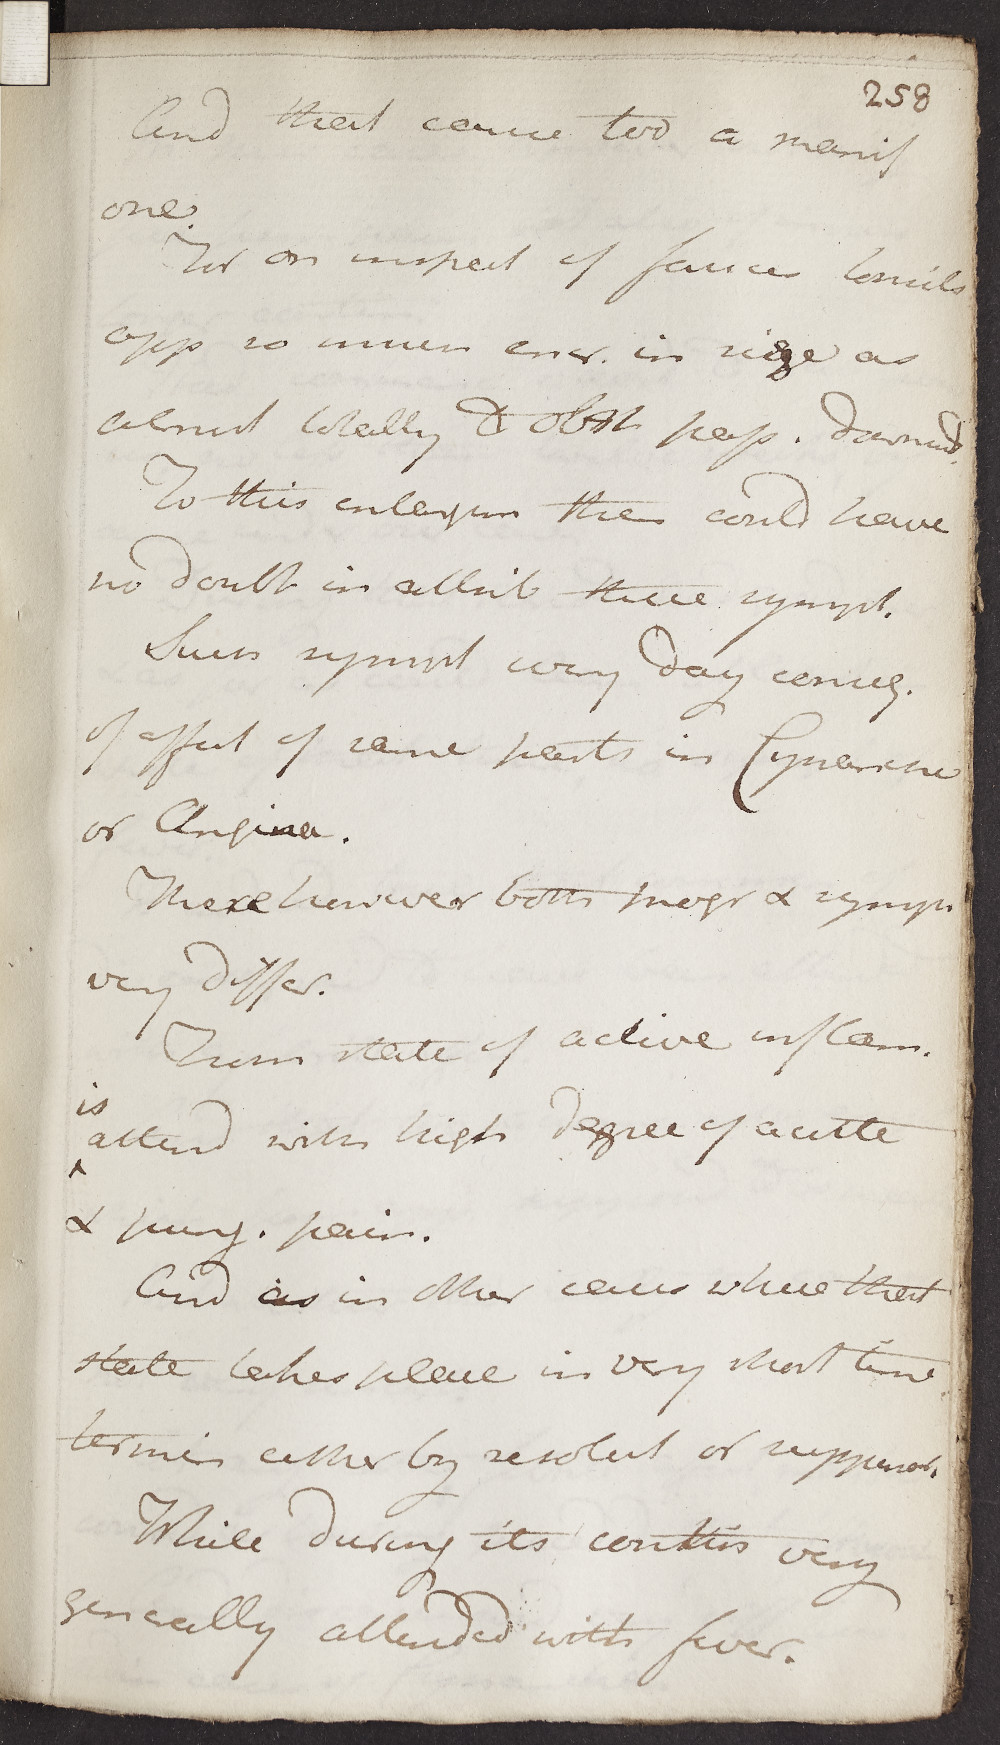 258
And that cause too a manif
one.
For on inspect of fauces tonsils
app so much encr. in size as
almost totally to obst pass. downwd.
To this enlargm then could have
no doubt in attrib these sympt.
Such sympt every day conseq.
of affect of same parts in Cynanche
or Angina.
There however both progr & symp
very differ.
From state of active inflam.
is
attend with high degree of acute
& pung. pain.
And as in other cases where that
state takes place in very short time
termin either by resolut or suppurat.
While during its contin very
generally attended with fever.